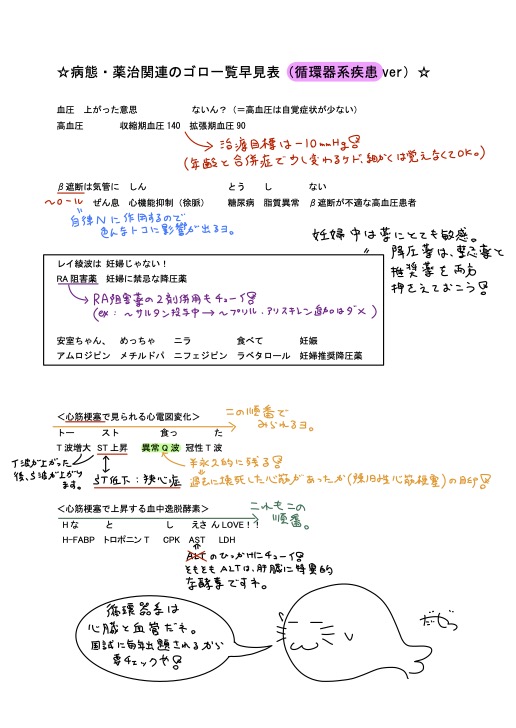 ☆病態・薬治関連のゴロ一覧早見表（循環器系疾患 ver）☆
血圧 上がった意思 ないん？（＝高血圧は自覚症状が少ない）
高血圧 収縮期血圧 140 拡張期血圧 90
治療目標は－10mmHg
(年齢と合併症で少し変わるケド、細かくは覚えなくてOK。)
β遮断は気管に しん とう し ない
～ロール ぜん息 心機能抑制（徐脈） 糖尿病 脂質異常 β遮断が不適な高血圧患者
自律Nに作用するので
色んなトコに影響が出るヨ。
妊娠中は薬にとても敏感。
降圧薬は、禁忌薬と
推奨薬を両方
押さえておこう
レイ綾波は 妊婦じゃない！
RA 阻害薬 妊婦に禁忌な降圧薬
RA阻害薬の2剤併用もチューイ
(ex：～サルタン投与中→～プリル、アリスキレン追加はダメ)
安室ちゃん、 めっちゃ ニラ 食べて 妊娠
アムロジピン メチルドパ ニフェジピン ラベタロール 妊婦推奨降圧薬
＜心筋梗塞で見られる心電図変化＞
この順番で
みられるヨ。
トー スト 食っ た
T 波増大 ST 上昇 異常 Q 波 冠性 T 波
T波が上がった
後、S波が上がり
ます。
ST低下：狭心症
半永久的に残る
過去に壊死した心筋があったか(陳旧性心筋梗塞)の目印
＜心筋梗塞で上昇する血中逸脱酵素＞
これもこの
順番。
H な と し えさ ん LOVE！！
H-FABP トロポニン T CPK AST LDH
ALTのひっかけにチューイ
そもそもALTは、肝臓に特異的
な酵素ですネ。
循環器系は
心臓と血管だネ。
国試に毎年出題されるから
要チェックや